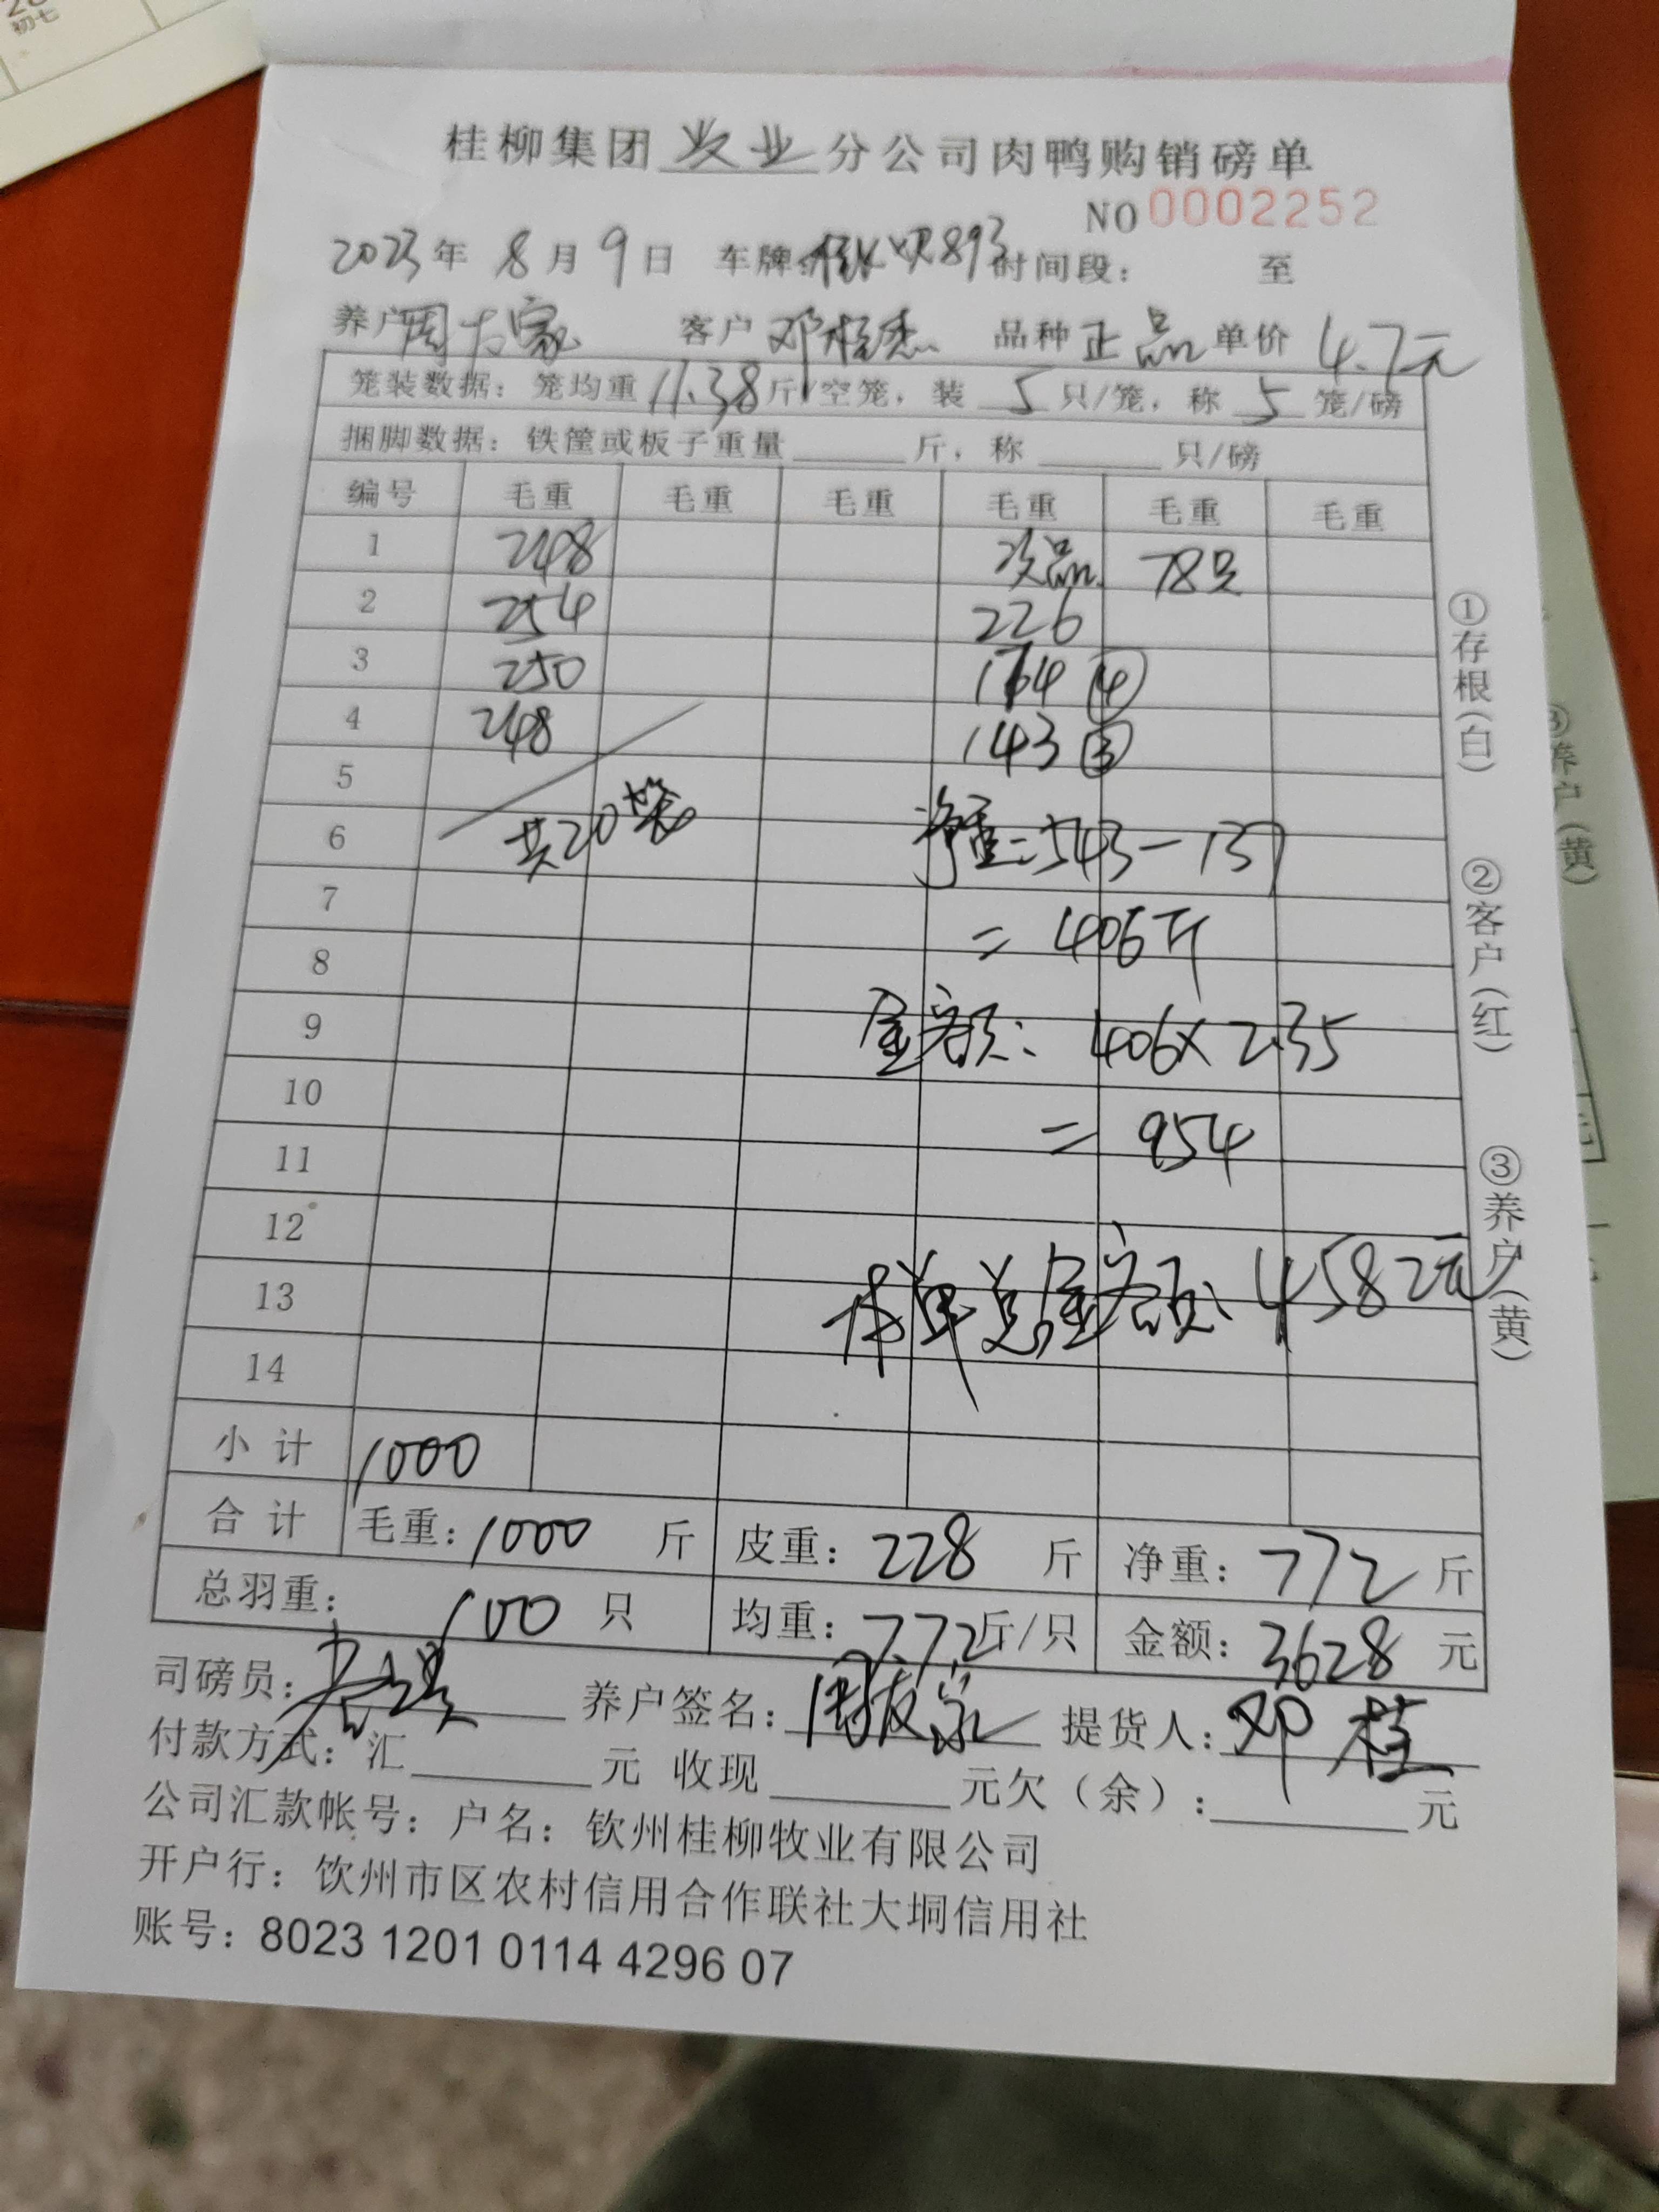 初七
桂柳集团 牧业 分公司肉鸭购销磅单
NO 0002252
2023年 8月9日 车牌 893 时间段： 至
养户 周 家 客户 邓桂 品种 正品 单价 4.7元
笼装数据：笼均重 11.38 斤/空笼，装 5 只/笼，称 5 笼/磅
捆脚数据：铁筐或板子重量 斤，称 只/磅
编号 毛重 毛重 毛重 毛重 毛重 毛重
1 248 次品 78只
2 254 226
3 250 164 ④
4 248 143 ③
5
6 共20笼 净重=543-137
7 = 406斤
8
9 金额： 406×2.35
10 = 954
11
12
13 本单总金额：4582元
14
小计 1000
合计 毛重：1000 斤 皮重：228 斤 净重：772 斤
总羽重： 100 只 均重：7.72斤/只 金额：3628 元
司磅员： 养户签名：周 家 提货人：邓桂
付款方式：汇 元 收现 元欠（余）： 元
公司汇款帐号：户名：钦州桂柳牧业有限公司
开户行：钦州市区农村信用合作联社大垌信用社
账号：8023 1201 0114 4296 07
①存根(白) ②客户(红) ③养户(黄)
③养户(黄)